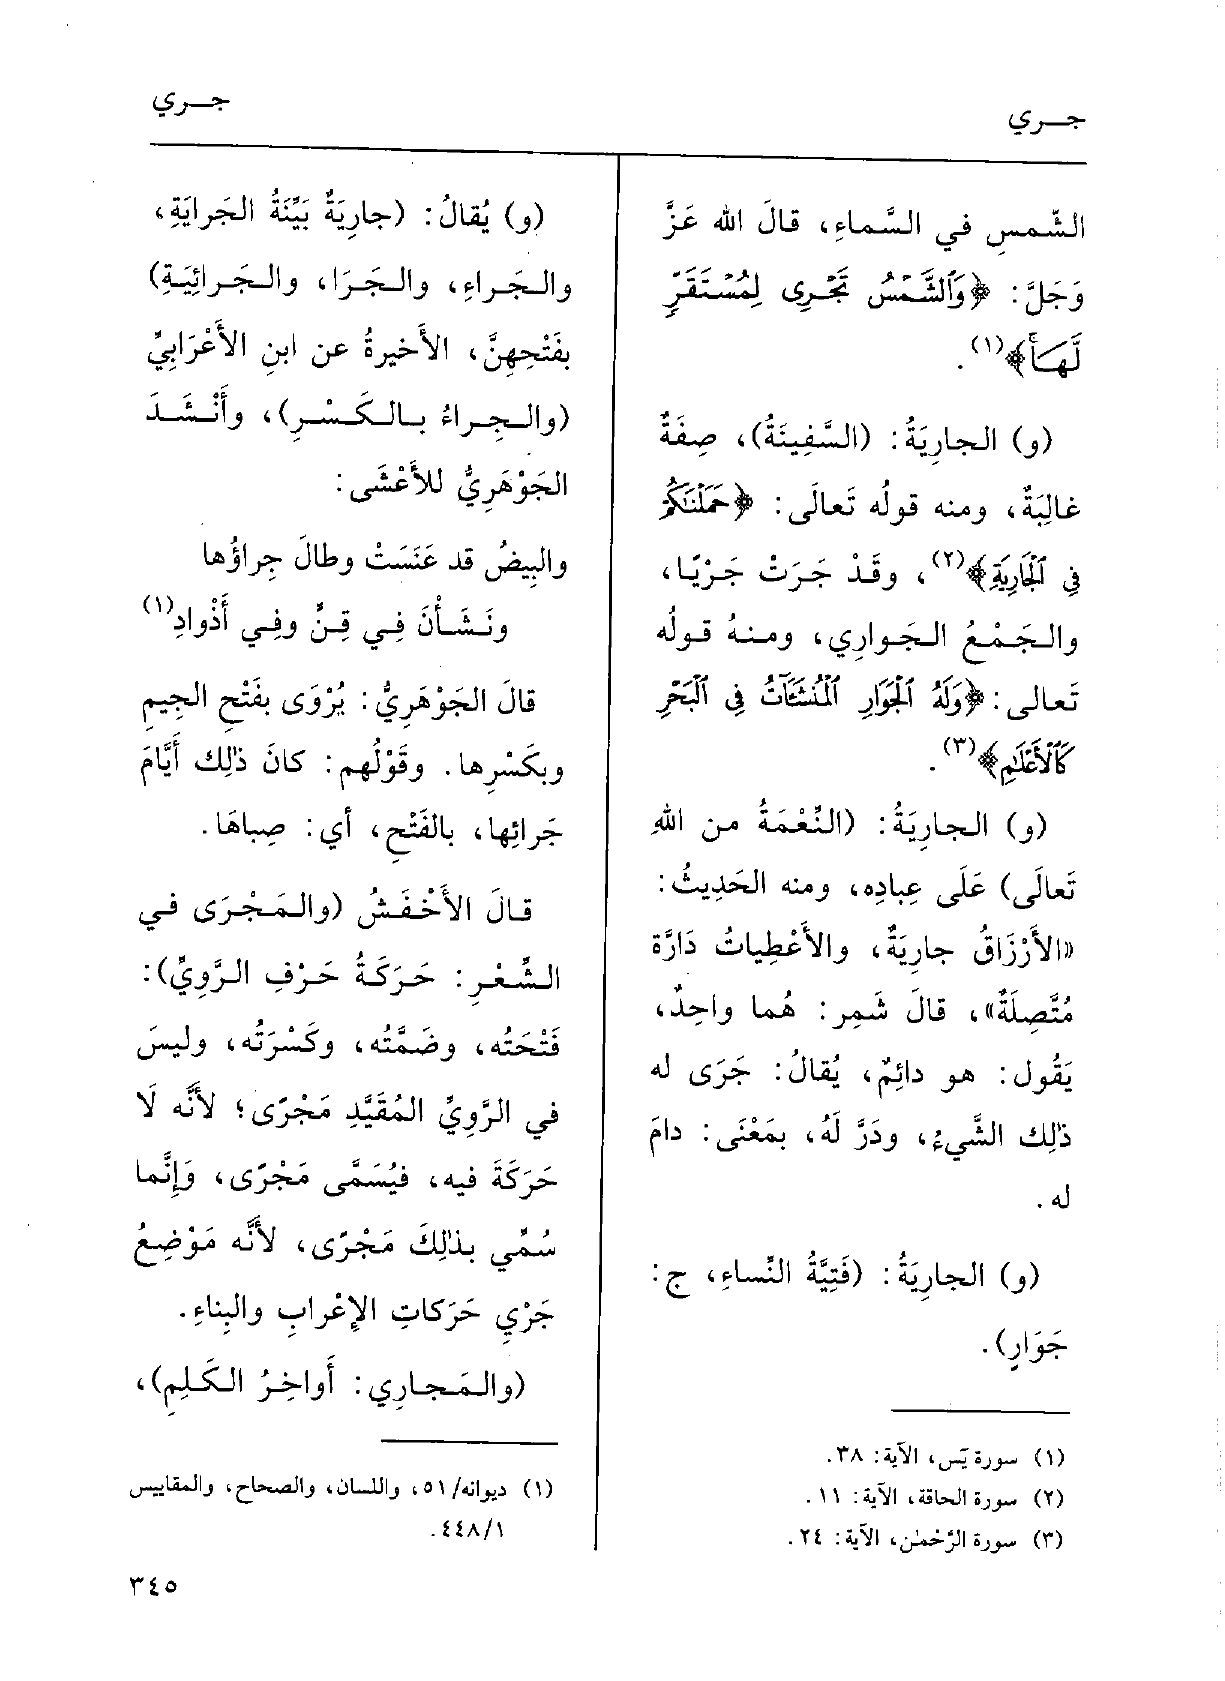 جــري
جــري
الشّمسِ في السَّماءِ، قالَ الله عَزَّ
وَجَلَّ: ﴿وَٱلشَّمْسُ تَجْرِى لِمُسْتَقَرٍّ
لَّهَا﴾(١).
(و) الجارِيَةُ: (السَّفِينَةُ)، صِفَةٌ
غالِبَةٌ، ومنه قولُه تَعالَى: ﴿حَمَلْنَٰكُمْ
فِى ٱلْجَارِيَةِ﴾(٢)، وقَدْ جَرَتْ جَرْيًا،
والجَمْعُ الجَوارِي، ومنهُ قولُه
تَعالى: ﴿وَلَهُ ٱلْجَوَارِ ٱلْمُنشَـَٔاتُ فِى ٱلْبَحْرِ
كَٱلْأَعْلَٰمِ﴾(٣).
(و) الجارِيَةُ: (النِّعْمَةُ من اللهِ
تَعالَى) عَلَى عِبادِه، ومنه الحَدِيثُ:
«الأَرْزَاقُ جارِيَةٌ، والأَعْطِياتُ دَارَّة
مُتَّصِلَةٌ»، قالَ شَمِر: هُما واحِدٌ،
يَقُول: هو دائِمٌ، يُقالُ: جَرَى له
ذٰلِك الشَّيءُ، ودَرَّ لَهُ، بمَعْنَى: دامَ
له.
(و) الجارِيَةُ: (فَتِيَّةُ النِّساءِ، ج:
جَوَارٍ).
(١) سورة يَس، الآية: ٣٨.
(٢) سورة الحاقة، الآية: ١١.
(٣) سورة الرَّحْمٰن، الآية: ٢٤.
(و) يُقالُ: (جارِيَةٌ بَيِّنَةُ الجَرايَةِ،
والجَراءِ، والجَرَا، والجَرائِيَةِ)
بفَتْحِهِنَّ، الأَخيرةُ عن ابنِ الأَعْرَابِيِّ
(والجِراءُ بالكَسْرِ)، وأَنْشَدَ
الجَوْهَرِيُّ للأَعْشَى:
والبِيضُ قد عَنَسَتْ وطالَ جِراؤُها
ونَشَأْنَ فِي قِنٍّ وفِي أَذْوادِ(١)
قالَ الجَوْهَرِيُّ: يُرْوَى بفَتْحِ الجِيمِ
وبكَسْرِها. وقَوْلُهم: كانَ ذٰلِك أَيَّامَ
جَرائِها، بالفَتْحِ، أي: صِباهَا.
قالَ الأَخْفَشُ (والمَجْرَى في
الشِّعْرِ: حَرَكَةُ حَرْفِ الرَّوِيِّ):
فَتْحَتُه، وضَمَّتُه، وكَسْرَتُه، وليسَ
في الرَّوِيِّ المُقَيَّدِ مَجْرًى؛ لأَنَّه لَا
حَرَكَةَ فيه، فيُسَمَّى مَجْرًى، وَإِنَّما
سُمِّي بذٰلِكَ مَجْرًى، لأَنَّه مَوْضِعُ
جَرْيِ حَرَكاتِ الإِعْرابِ والبِناءِ.
(والمَجارِي: أَواخِرُ الكَلِمِ)،
(١) ديوانه/ ٥١، واللسان، والصحاح، والمقاييس
٤٤٨/١.
٣٤٥